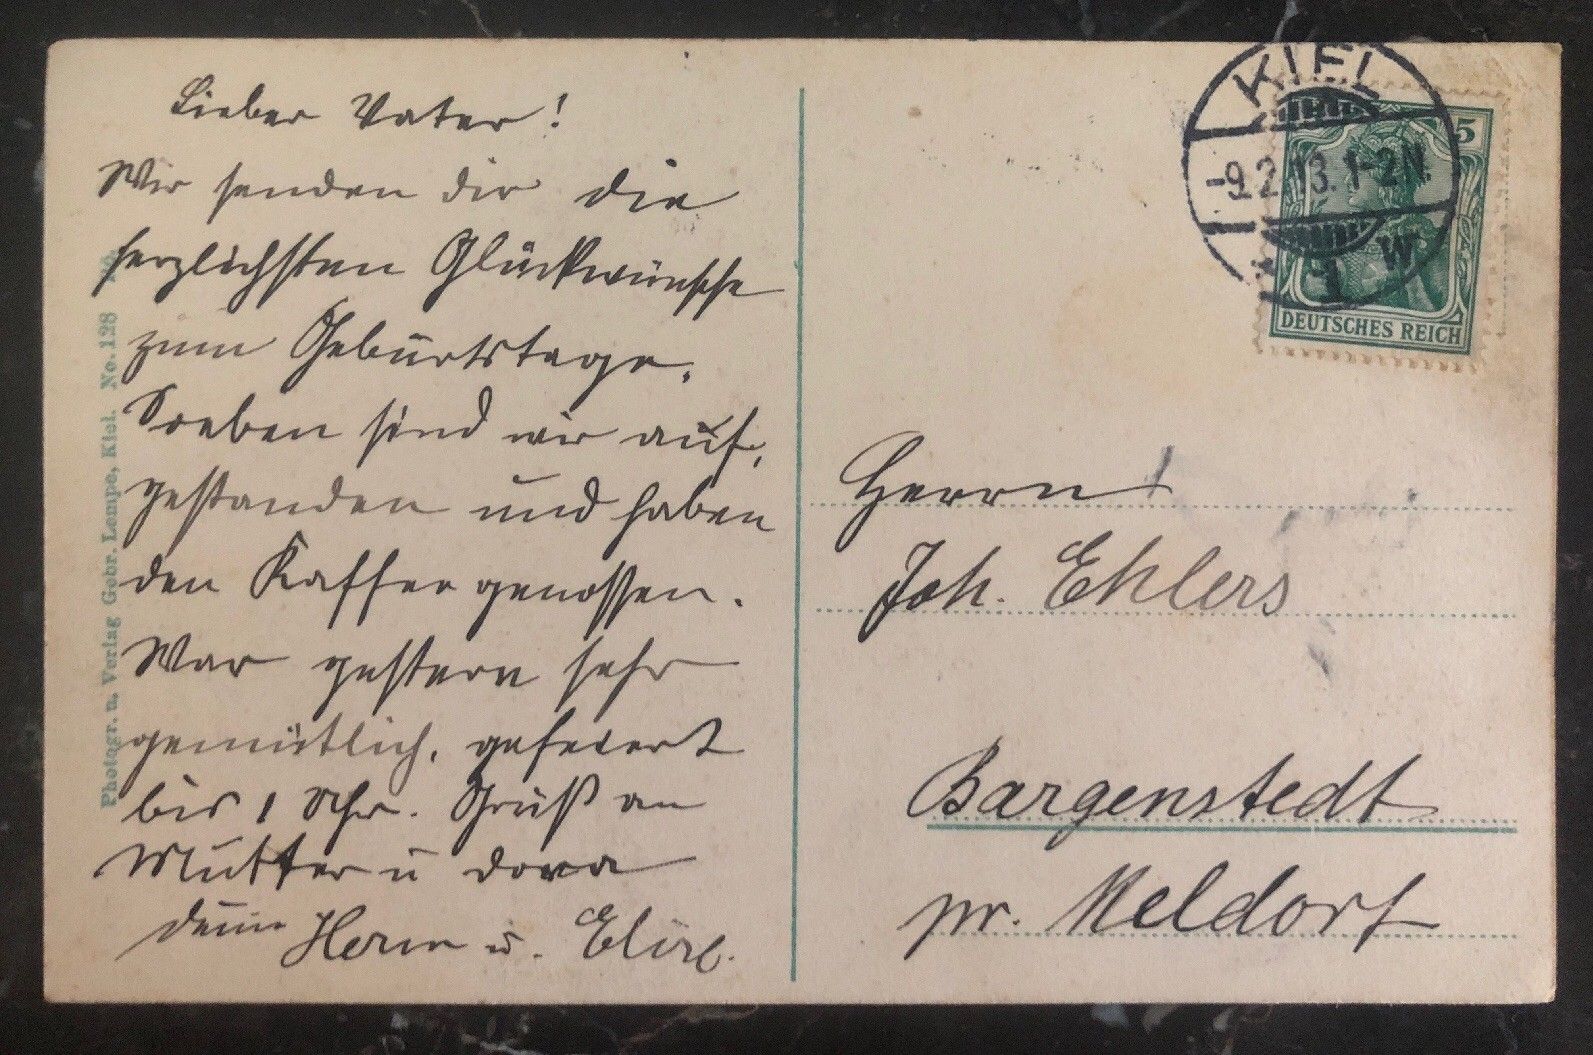 Lieber Vater!
Wir senden dir die
herzlichsten Glückwünsche
zum Geburtstage.
Soeben sind wir auf,
gestanden und haben
den Kaffee genossen.
War gestern sehr
gemütlich, gefeiert
bis 1 Uhr. Gruß an
Mutter u Dora
dein Herm u.
Photogr. u. Verlag Gebr. Lempe, Kiel. No. 128
KIEL
-9.2.13.1-2N.
* 1 W
5
DEUTSCHES REICH
Herrn
Joh. Ehlers
Bargenstedt
pr. Meldorf